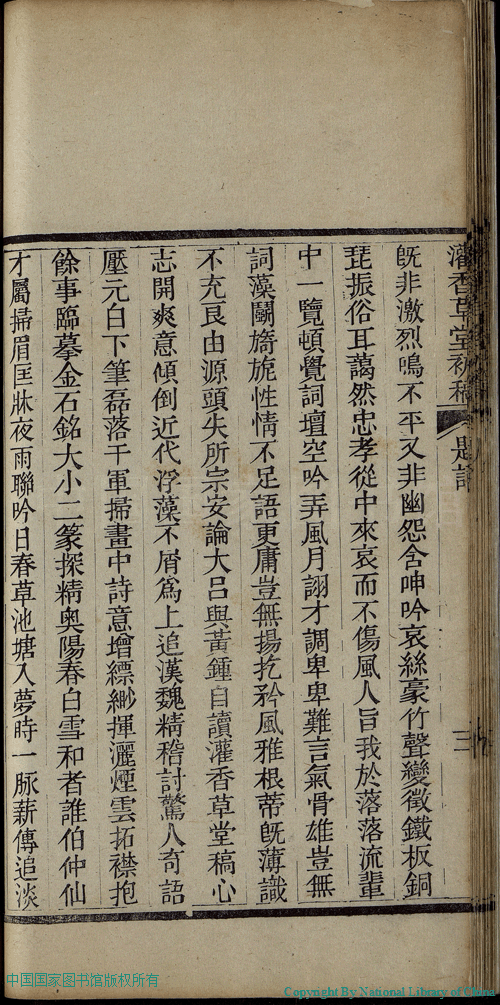 灌香草堂初稿 題詞 三
既非激烈鳴不平又非幽怨含呻吟哀絲豪竹聲變徵鐵板銅
琵振俗耳藹然忠孝從中來哀而不傷風人旨我於落落流輩
中一覽頓覺詞壇空吟弄風月詡才調卑卑難言氣骨雄豈無
詞藻鬭旖旎性情不足語更庸豈無揚扢矜風雅根蒂既薄識
不充良由源頭失所宗安論大呂與黃鍾自讀灌香草堂稿心
志開爽意傾倒近代浮藻不屑爲上追漢魏精稽討驚人奇語
壓元白下筆磊落千軍掃畫中詩意增縹緲揮灑煙雲拓襟抱
餘事臨摹金石銘大小二篆探精奥陽春白雪和者誰伯仲仙
才屬掃眉匡牀夜雨聯吟日春草池塘入夢時一脈薪傳追淡
中国国家图书馆版权所有
Copyright By National Library of China